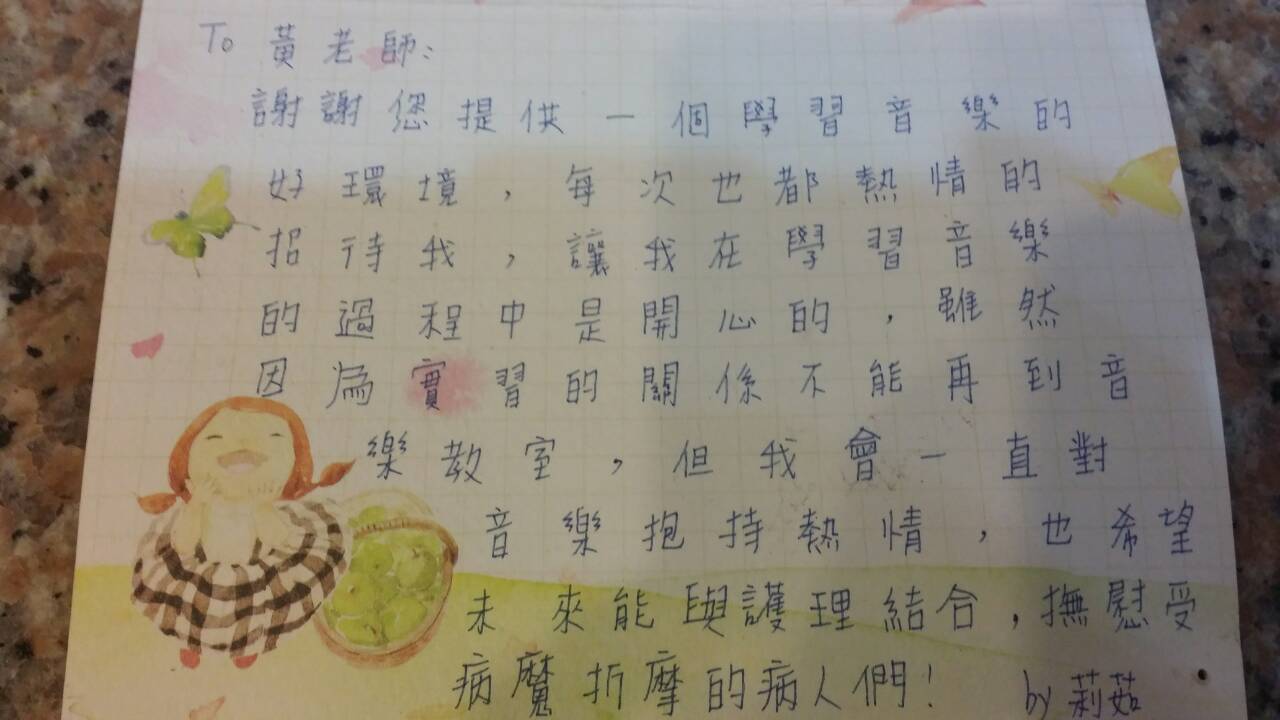 To 黃老師:
謝謝您提供一個學習音樂的
好環境，每次也都熱情的
招待我，讓我在學習音樂
的過程中是開心的，雖然
因為實習的關係不能再到音
樂教室，但我會一直對
音樂抱持熱情，也希望
未來能與護理結合，撫慰受
病魔折摩的病人們!
by 莉茹